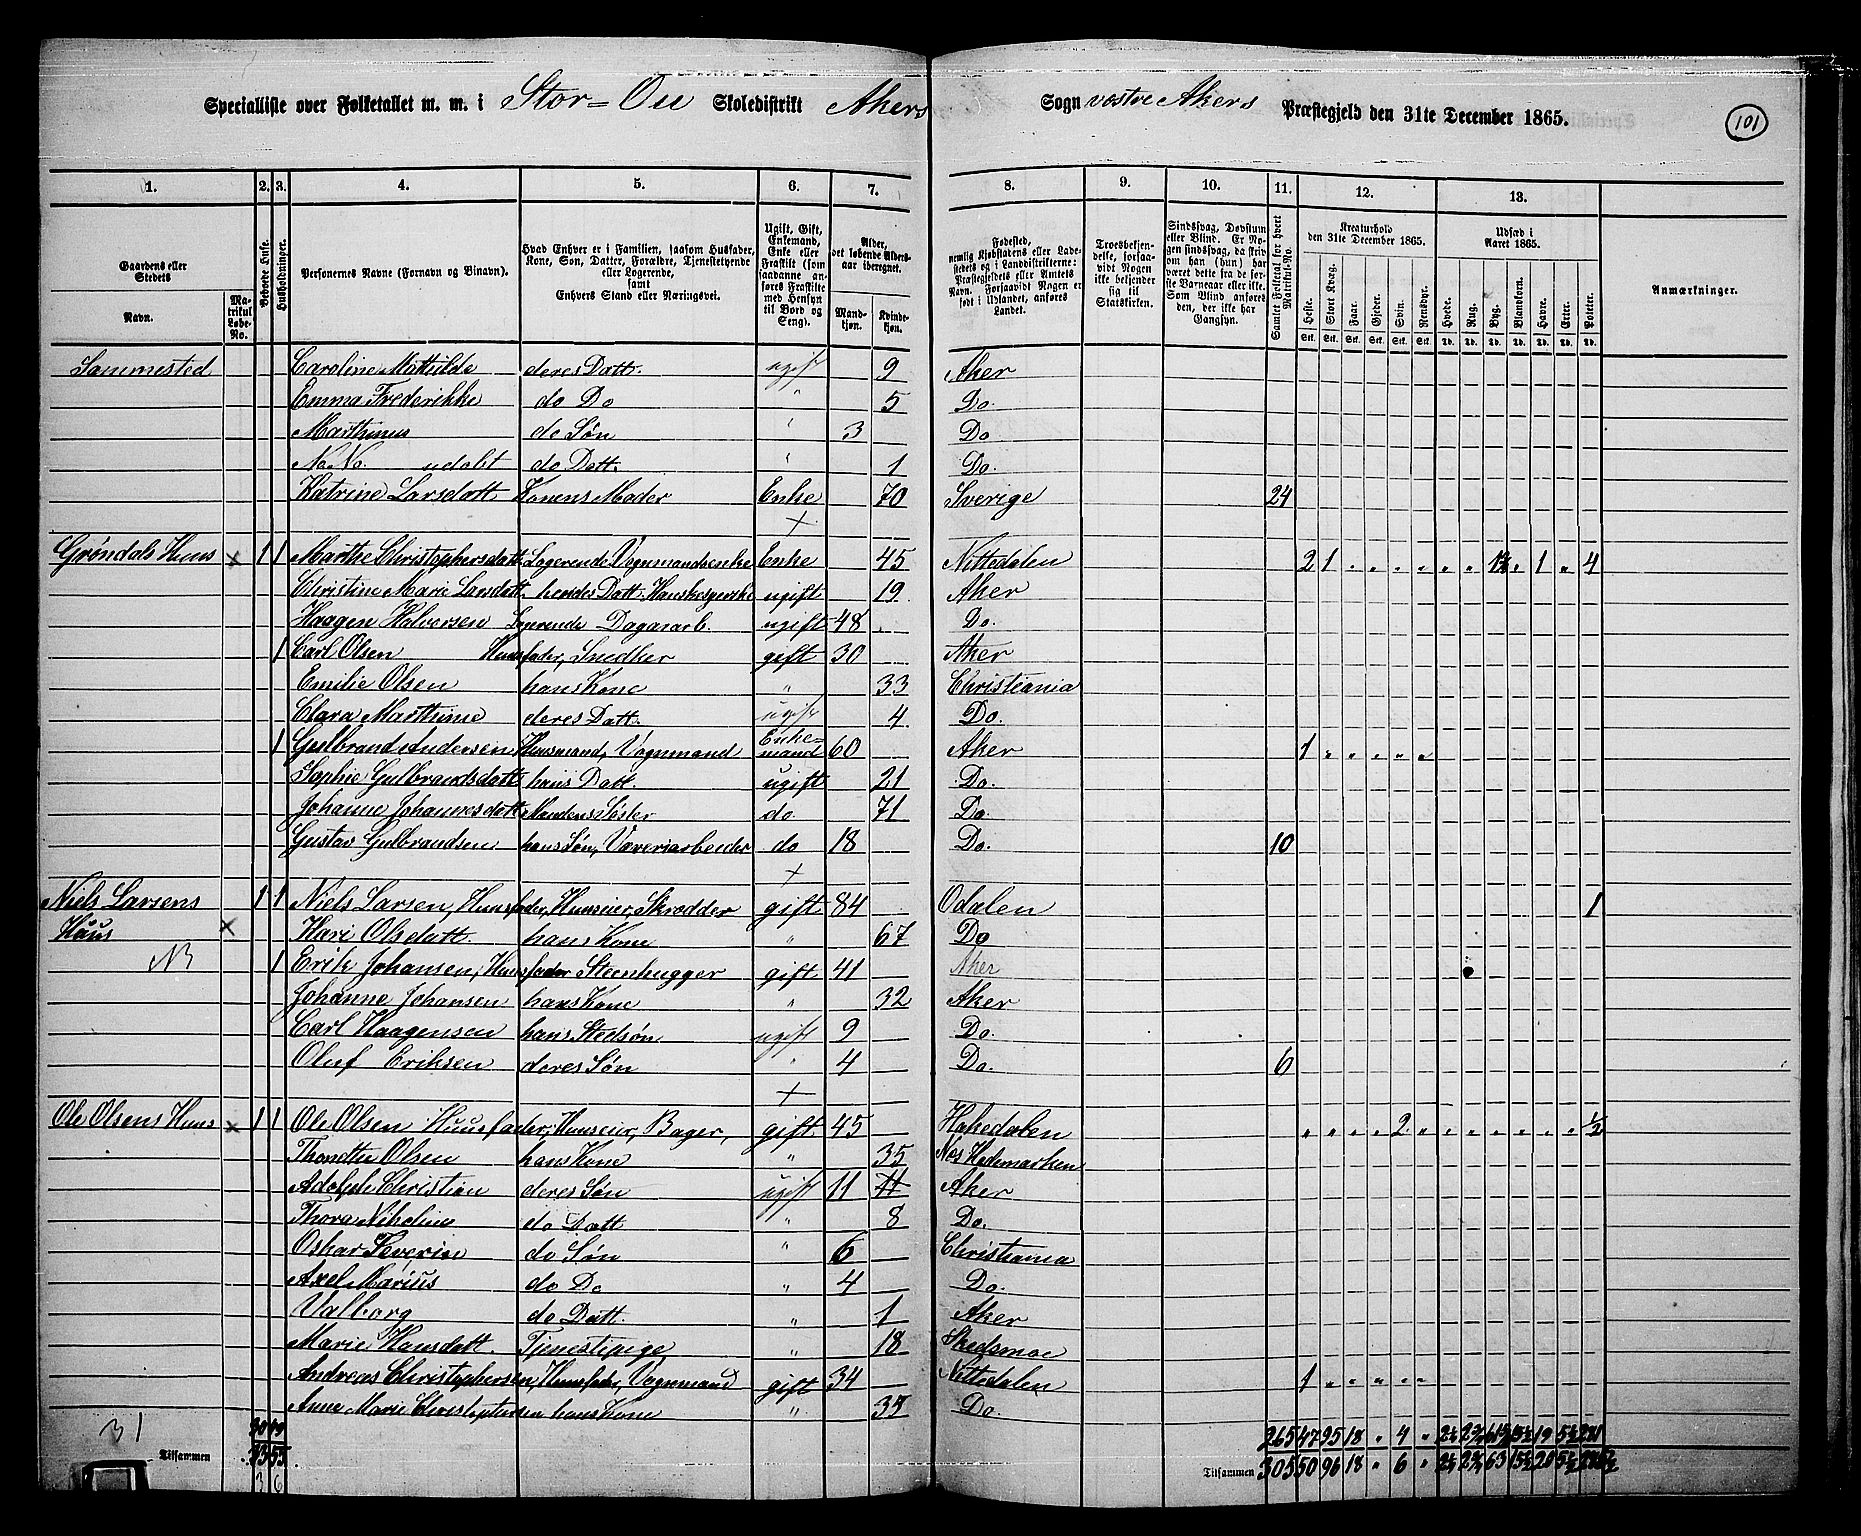 Specialliste over Folketallet m. m. i Stor-Øu Skoledistrikt Akers Sogn vestre Akers Præstegjeld den 31te December 1865. 101
1. 2. 3. 4. 5. 6. 7. 8. 9. 10. 11. 12. 13.
Gaardens eller Stedets Navn. Matrikul Løbe-No. Beboede Huse. Husholdninger. Personernes Navne (Fornavn og Binavn). Hvad Enhver er i Familien, saasom Husfader, Kone, Søn, Datter, Forældre, Tjenestetyende eller Logerende, samt Enhvers Stand eller Næringsvei. Ugift, Gift, Enkemand, Enke eller Fraskilt (som saadanne anføres Fraskilte med Hensyn til Bord og Seng). Alder, det løbende Aldersaar iberegnet. Mandkjøn. Kvindekjøn. Fødested, nemlig Kjøbstadens eller Ladestedets og i Landdistrikterne: Præstegjeldets eller Amtets Navn. Forsaavidt Nogen er født i Udlandet, anføres Landet. Troesbekjendelse, forsaavidt Nogen ikke bekjender sig til Statskirken. Sindssvag, Døvstum eller Blind. Er Nogen sindssvag, da skrives om han (hun) har været dette fra de første Barneaar eller ikke. Som Blind anføres den, der ikke har Gangsyn. Samlet Folketal for hvert Matrikul-No. Kreaturhold den 31te December 1865. Heste. Stort Kvæg. Faar. Gjeder. Svin. Rensdyr. Udsæd i Aaret 1865. Hvede. Rug. Byg. Blandkorn. Havre. Erter. Poteter. Anmærkninger.
Sammested Caroline Mathilde deres Datt. ugift 9 Aker
Emma Frederikke do Do " 5 Do.
Marthinus do Søn " 3 Do
N.N. udøbt do Datt. " 1 Do.
Katrine Larsdatt Konens Moder Enke 70 Sverige 24
+
Grøndals Huus × 1 1 Marthe Christophersdatt. Logerende Vognmandsenke Enke 45 Nittedalen 2 1 " " " " " " 1½ " 1 " 4
Christine Marie Larsdatt. hendes Datt. ugift 19 Aker
Haagen Halvorsen Logerende Dagarb. ugift 48 Do.
1 Carl Olsen Huusfader, Snedker gift 30 Aker
Emilie Olsen hans Kone " 33 Christiania
Clara Marthine deres Datt. ugift 4 Do.
1 Gulbrand Andersen Huusmand, Vognmand Enkemand 60 Aker 1 " " " " "
Sophie Gulbrandsdatt hans Datt. ugift 21 Do.
Johanne Johannesdatt Mandens Søster do 71 Do
Gustav Gulbrandsen hans Søn, Væveriarbeider do 18 Do. 10
+
Niels Larsens 1 1 Niels Larsen, Huusfader, Huuseier, Skrædder gift 84 Odalen 1
Huus × Kari Olsdatt. hans Kone " 67 Do
NB 1 Erik Johansen, Huusfader Steenhugger gift 41 Aker
Johanne Johansen hans Kone " 32 Aker
Carl Haagensen hans Stedsøn ugift 9 Do.
Oluf Eriksen deres Søn " 4 Do. 6
+
Ole Olsens Huus × 1 1 Ole Olsen Huusfader, Huuseier, Bager, gift 45 Hakedalen " " " " 2 " " " " " " " ½
Olsen hans Kone " 35 Nes Hedemarken
Adolph Christian deres Søn ugift 11 11 Aker
Thora Nikoline do Datt " 8 Do.
Oskar Severin do Søn " 6 Christiania
Axel Marius do Do " 4 Do.
Valborg do Datt. " 1 Aker
Marie Hansdatt. Tjenestepige " 18 Skedsmoe
Andreas Christophersen, Huusfader, Vognmand gift 34 Nittedalen 1 " " " " "
Anne Marie Christophersen hans Kone " 35 Do.
31 265 47 95 18 " 4 "
Tilsammen 33 55 Tilsammen 305 50 96 18 " 6 "
3 6